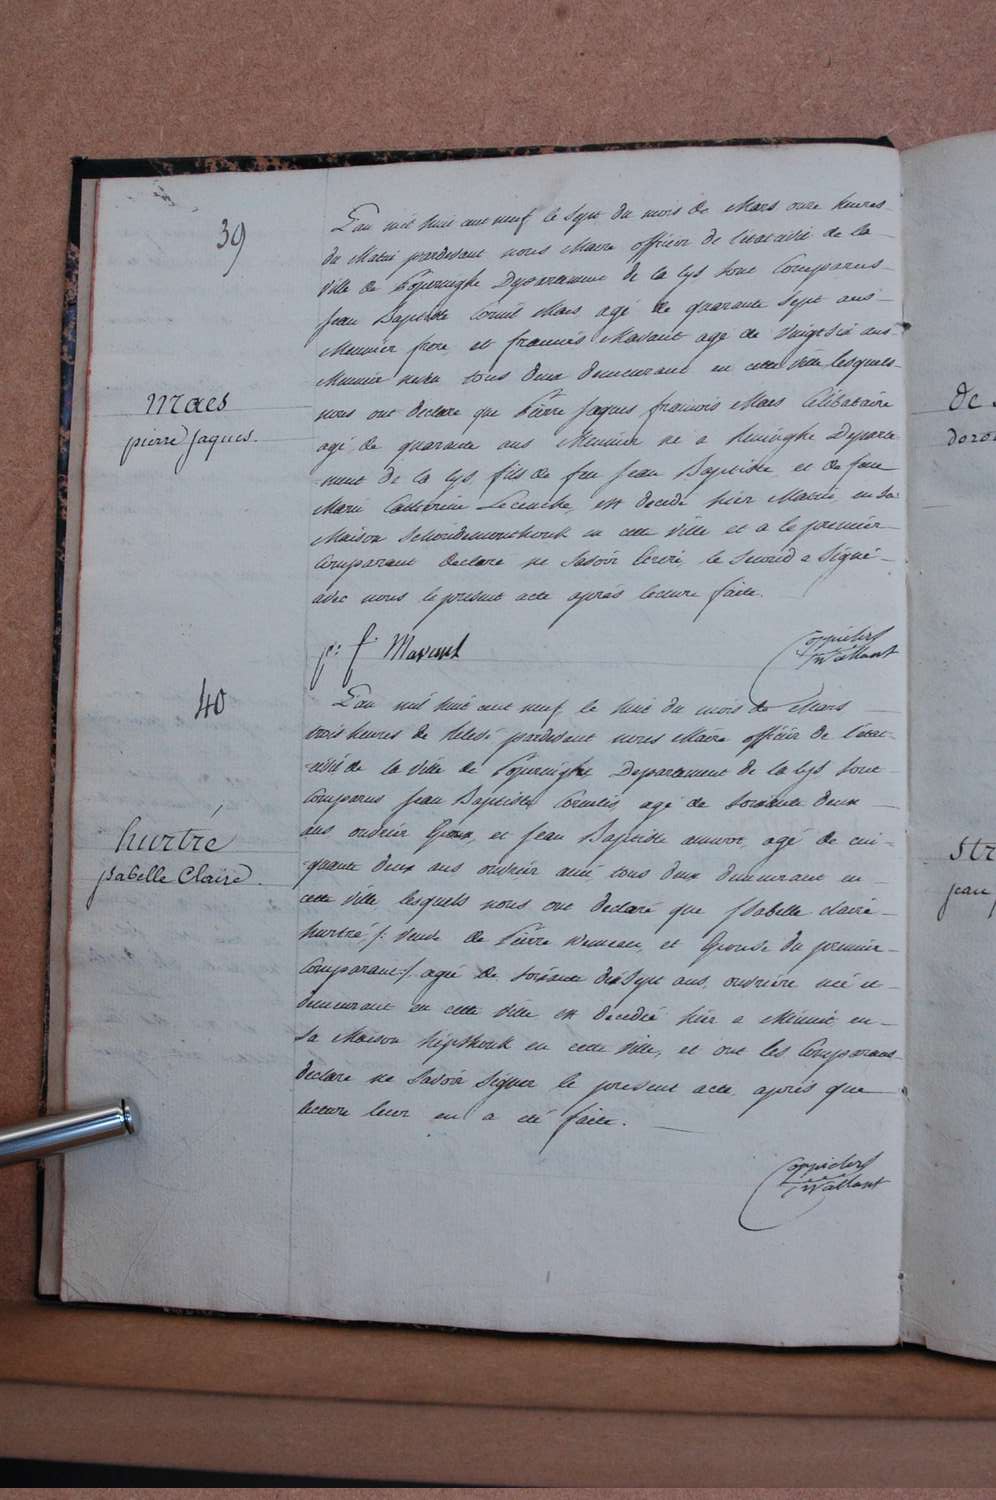 39
L'an mil huit cent neuf le sept du mois de Mars onze heures
du Matin pardevant nous Maire officier de l'état civil de la
ville de Poperinghe Departement de la Lys sont Comparus
Jean Baptiste Cornil Maes, agé de quarante sept ans
Meunier frere, et francois Mavaut agé de vingt six ans
Meunier neveu tous deux demeurant en cette ville lesquels
nous ont declare que Pierre Jaques francois Maes Celibataire
Maes
pierre Jaques.
agé de quarante ans Meunier né a Reninghe Departe
-ment de la Lys, fils de feu Jean Baptiste et de feue
Marie Catherine est decede hier Matin, en sa
Maison en cette ville et a le premier
Comparant declare ne savoir ecrire, le second a signé
avec nous le present acte après lecture faite.
p: f: Mavaut
Coppieters
T'Wallant
40
L'an mil huit cent neuf le huit du mois de Mars
trois heures de relevé pardevant nous Maire officier de l'état
-civil de la ville de Poperinghe Departement de la Lys sont
Comparus Jean Baptiste Cornilis agé de soixante deux
ans ouvrier Epoux, et Jean Baptiste agé de cin-
hurtré
jsabelle Claire.
-quante deux ans ouvrier ami, tous deux demeurant en
cette ville lesquels nous ont declaré que Jsabelle claire
hurtré /: veuve de Pierre et Epouse du premier
Comparant :/ agé de soixante dix sept ans, ouvrière née et
demeurant en cette ville est decedée hier a Minuit en
sa Maison en cette ville, et ont les Comparans
declare ne savoir signer le present acte, après que
lecture leur en a été faite.
Coppieters
T'Wallant
de
doro
str
jean